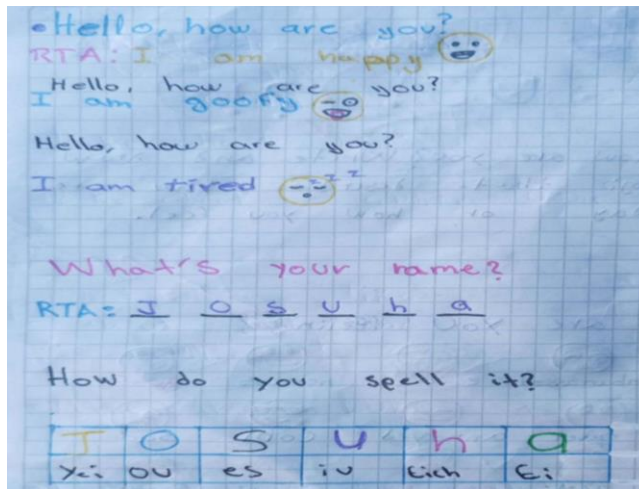 • Hello, how are you?
RTA: I am happy
Hello, how are you?
I am goofy
Hello, how are you?
I am tired z z z
What's your name?
RTA= J O S U h a
How do you spell it?
J O S U h a
Yei OU es iu Eich Ei